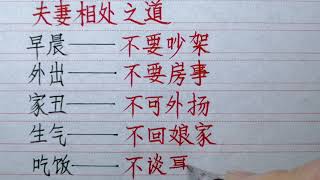 夫妻相处之道
早晨——不要吵架
外出——不要房事
家丑——不可外扬
生气——不回娘家
吃饭——不谈耳